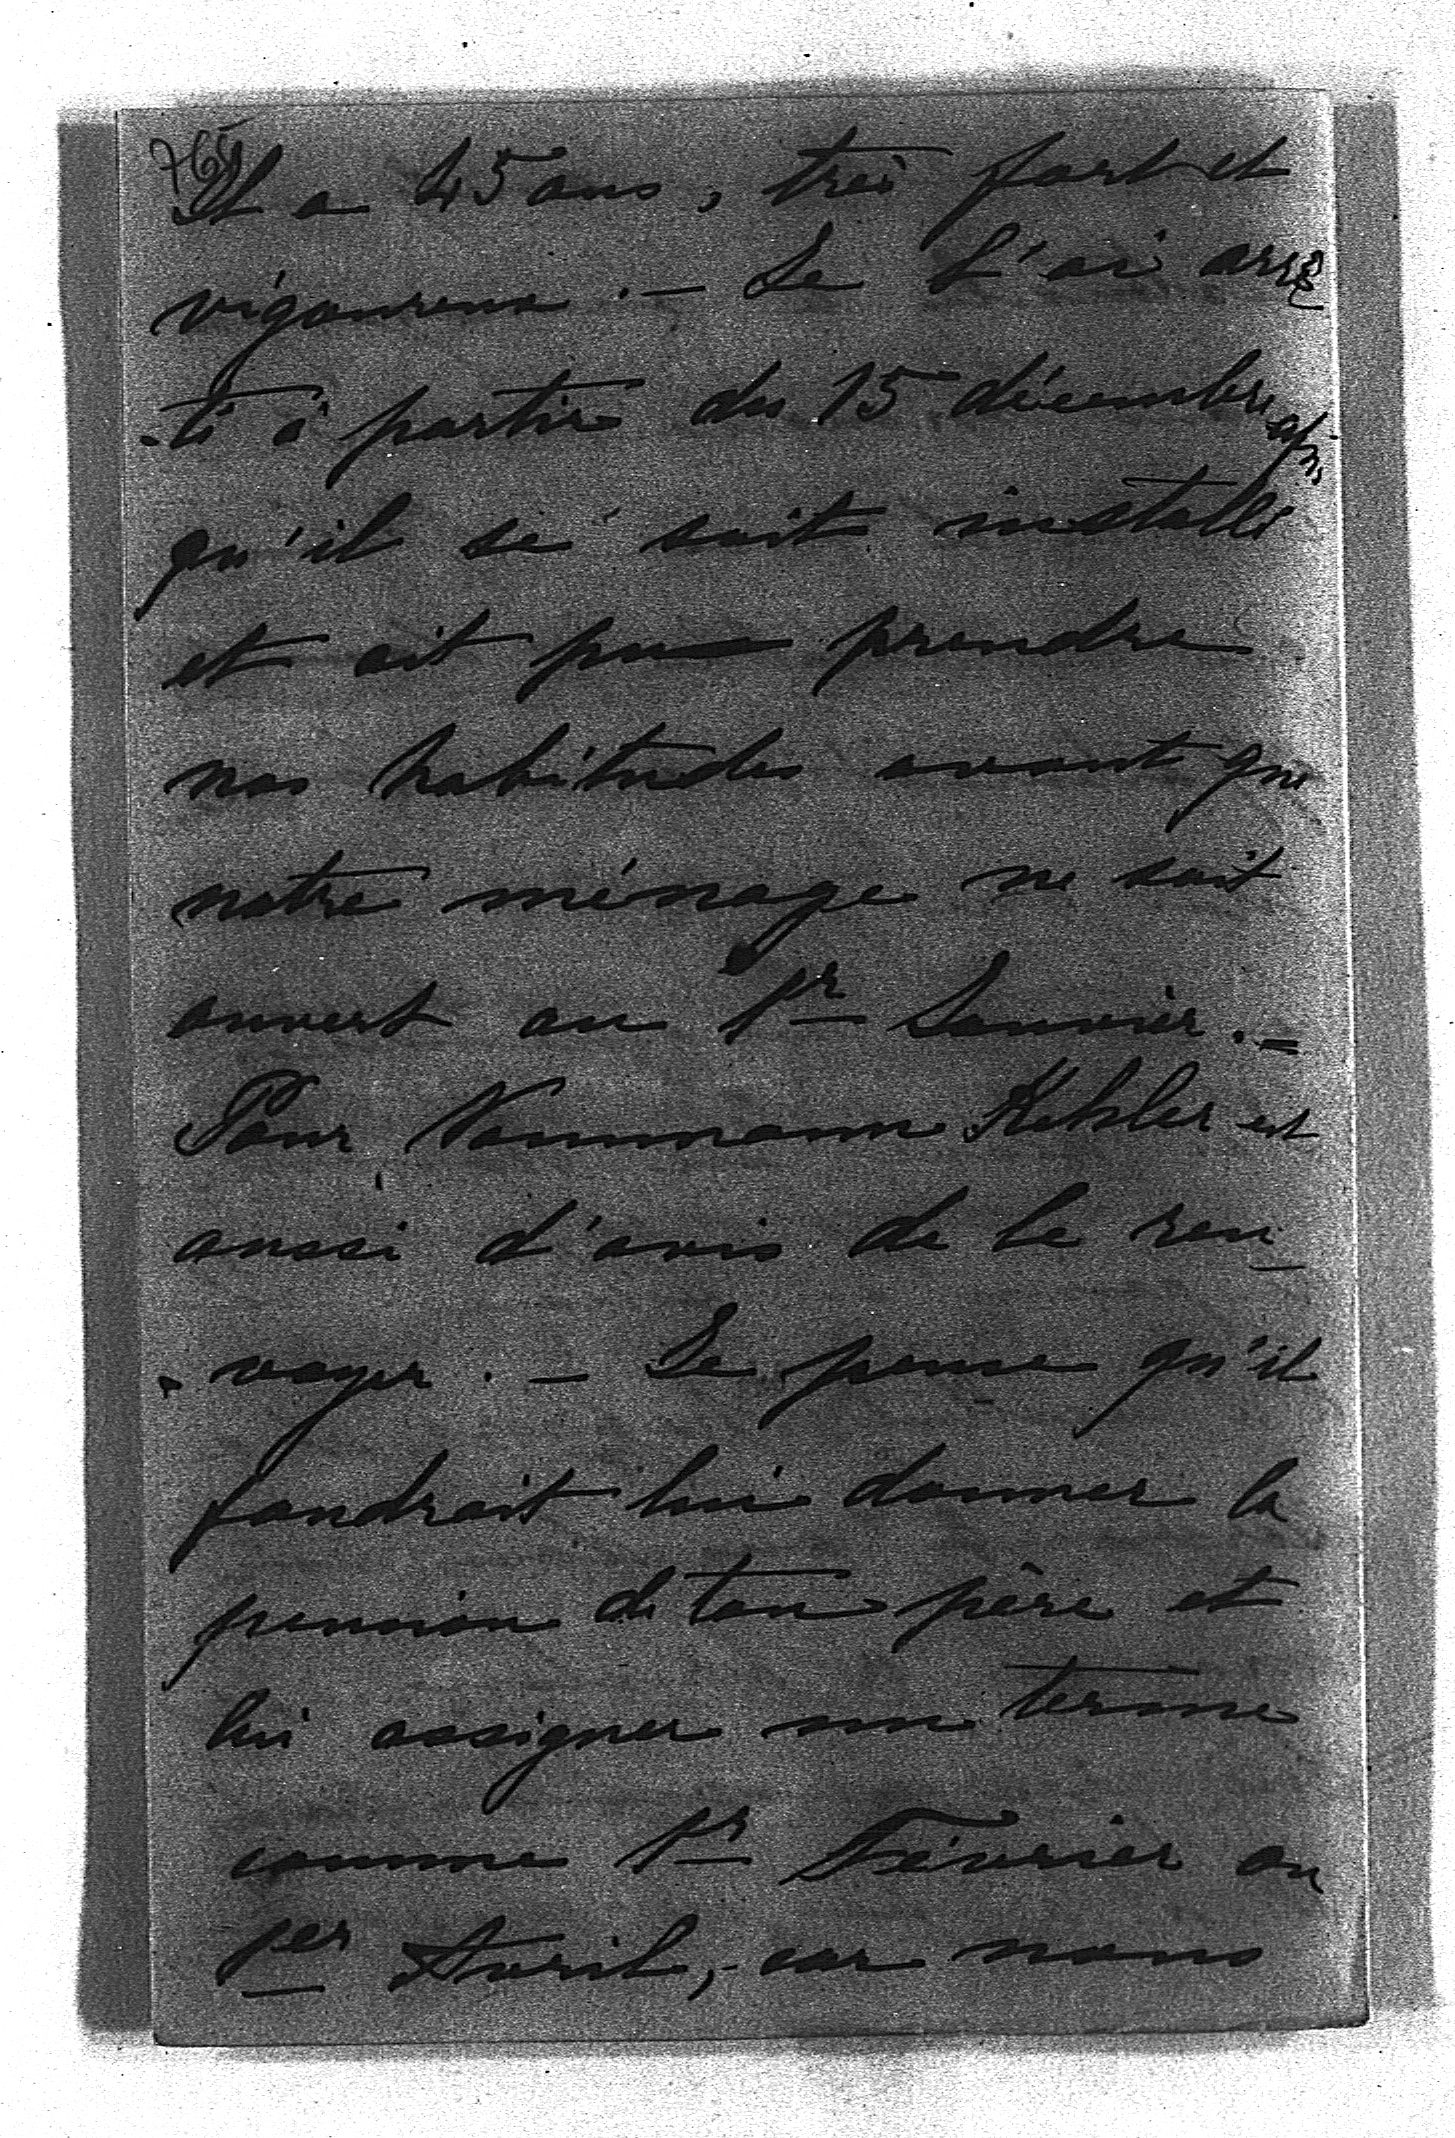 765
Il a 45 ans, très fort et
vigoureux. — Je l'ai arrê
-té à partir du 15 décembre afin
qu'il se soit installé
et ait pu prendre
nos habitudes avant que
notre ménage ne soit
ouvert au 1er Janvier. —
Pour Naumann Kehler est
aussi d'avis de le ren-
-voyer. — Je pense qu'il
faudrait lui donner la
pension de ton père et
lui assigner un terme
comme 1er Février ou
1er Avril, - car nous